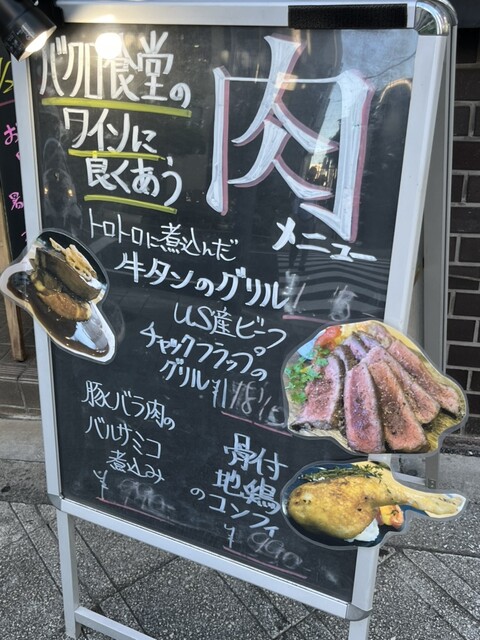 バクロ食堂の
ワインに
良くあう
肉
メニュー
トロトロに煮込んだ
牛タンのグリル
US産ビーフ
チャックフラップの
グリル
豚バラ肉の
バルサミコ
煮込み
¥990
骨付
地鶏
のコンフィ
¥990